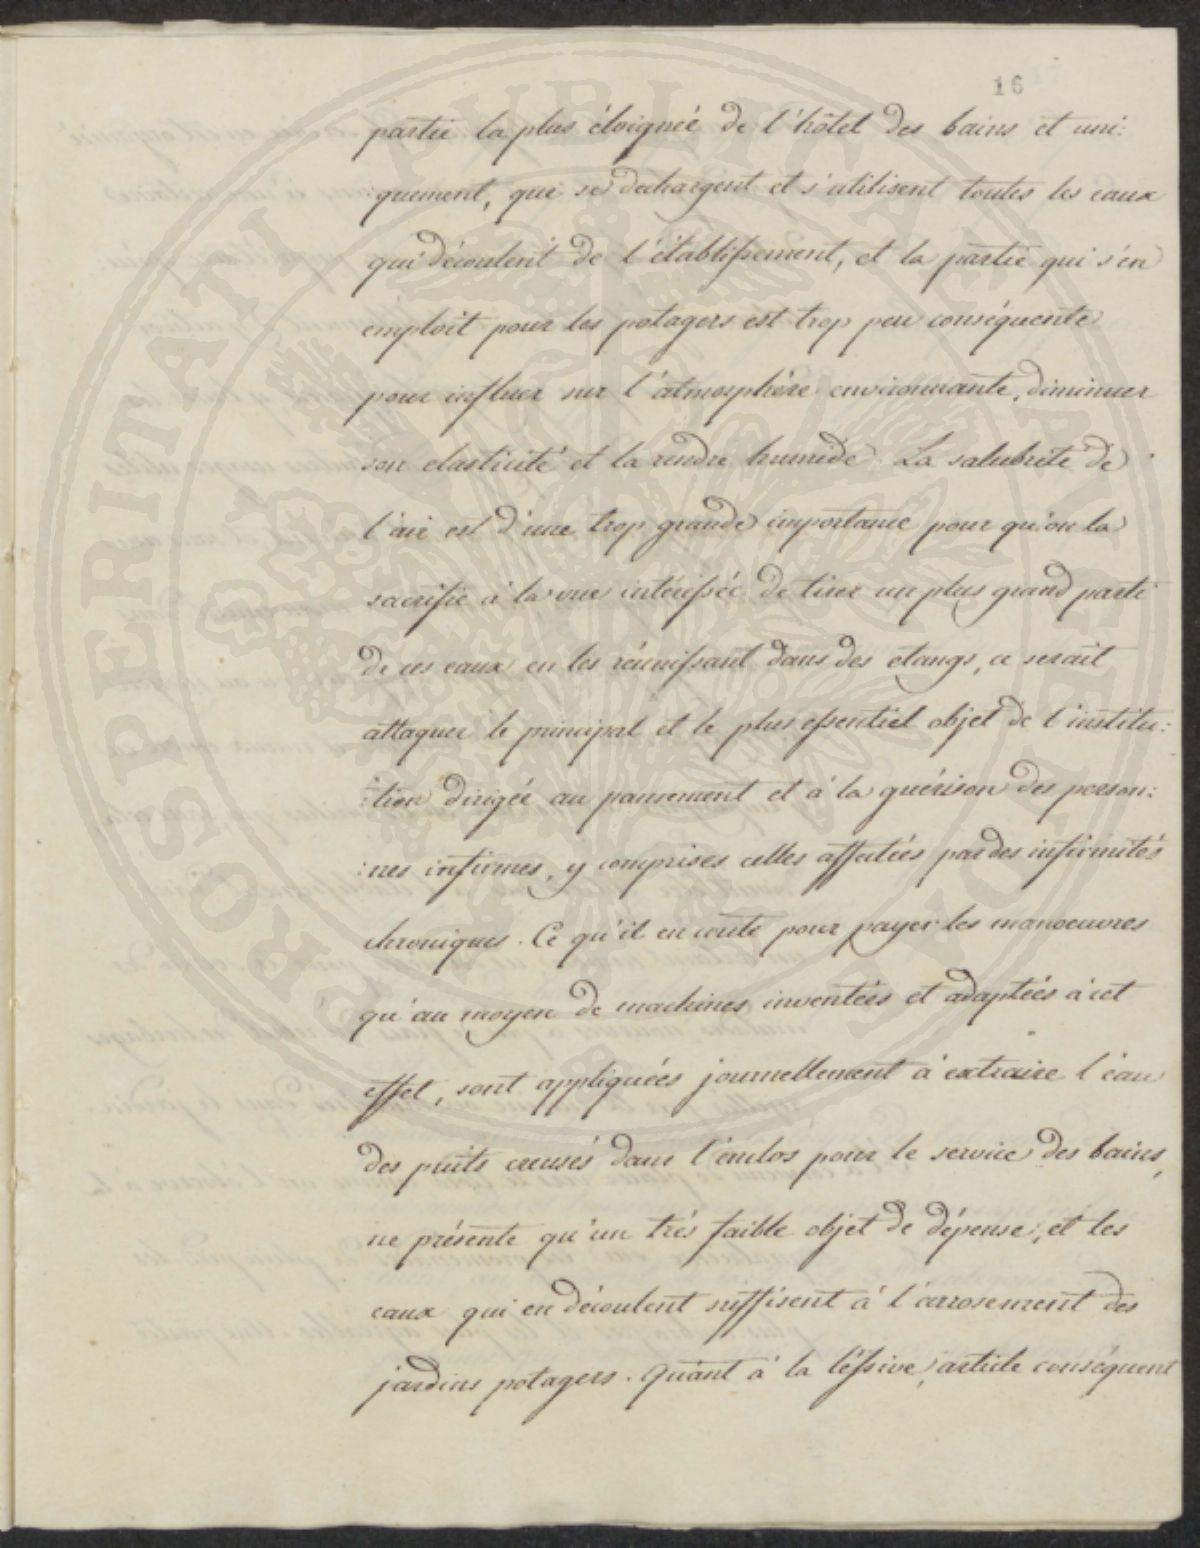 16
partie la plus éloignée de l'hôtel des bains et uni:
quement, que se dechargent et s'utilisent toutes les eaux
qui découlent de l'établissement, et la partie qui s'en
emploit pour les potagers est trop peu conséquente
pour influer sur l'atmosphère environnante, diminuer
son elasticité et la rendre humide. La salubrité de
l'air est d'une trop grande importance pour qu'on la
sacrifie à la vue intéressée de tirer un plus grand parti
de ces eaux en les réunissant dans des etangs, ce serait
attaquer le principal et le plus essentiel objet de l'institu:
:tion dirigée au pansement et à la guérison des person:
:nes infirmes, y comprises celles affectées par des infirmités
chroniques. Ce qu'il en coute pour payer les manoeuvres
qu'au moyen de machines inventées et adaptées à cet
effet, sont appliquées journellement à extraire l'eau
des puits creusés dans l'enclos pour le service des bains,
ne présente qu'un très faible objet de dépense, et les
eaux qui en découlent suffisent à l'arrosement des
jardins potagers. Quant à la léssive, article conséquent
PROSPERITATI PUBLICAE AVGENDAE